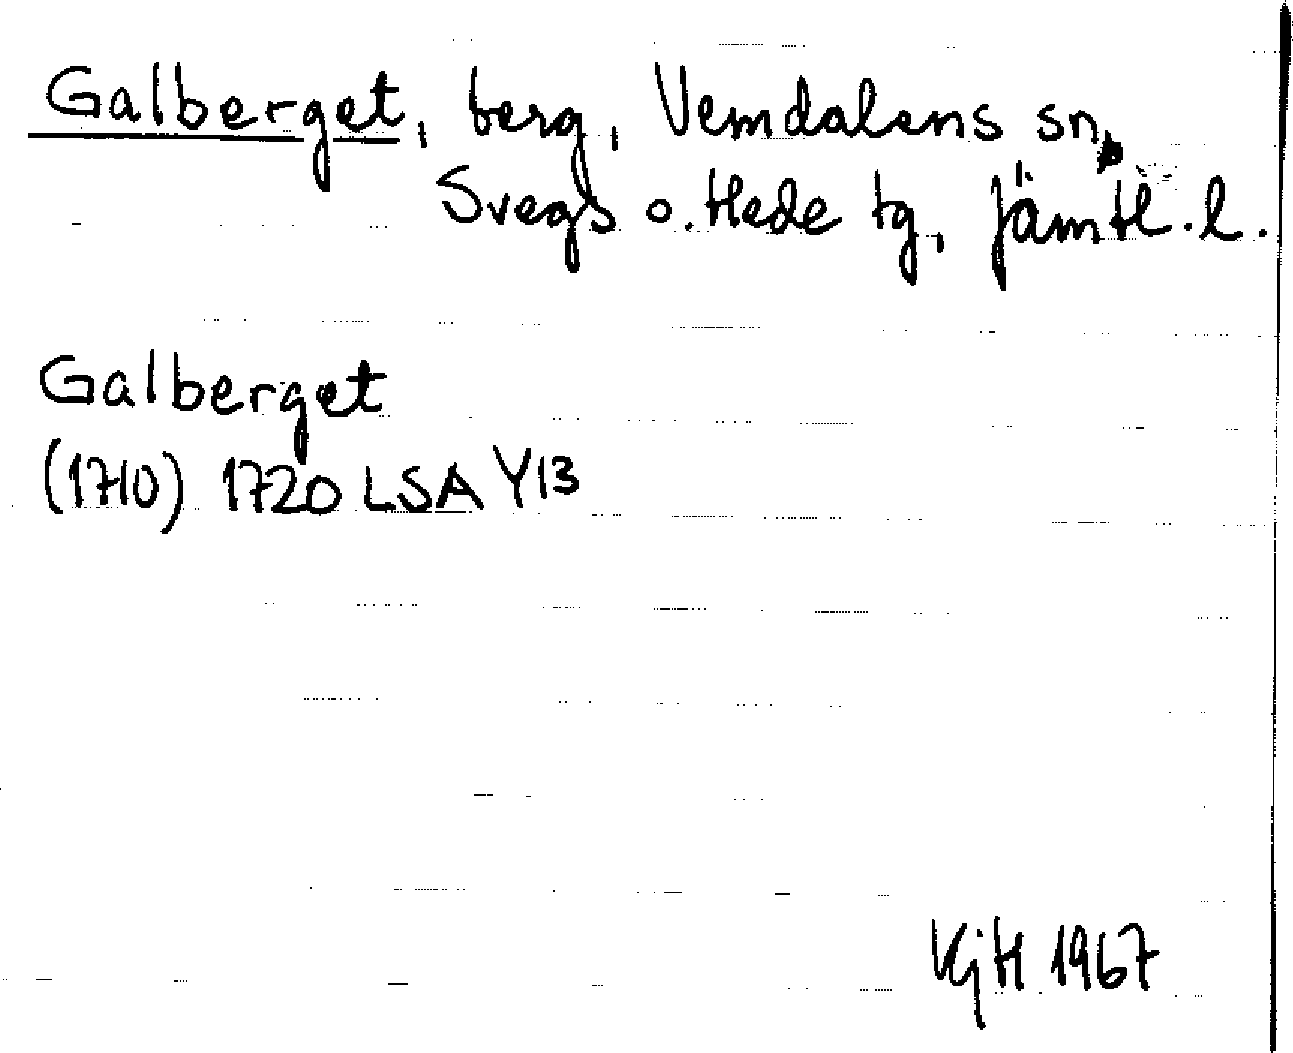 Galberget, berg, Vemdalens sn,
Svegs o. Hede tg, Jämtl. l.
Galberget
(1710) 1720 LSA Y13
KjH 1967